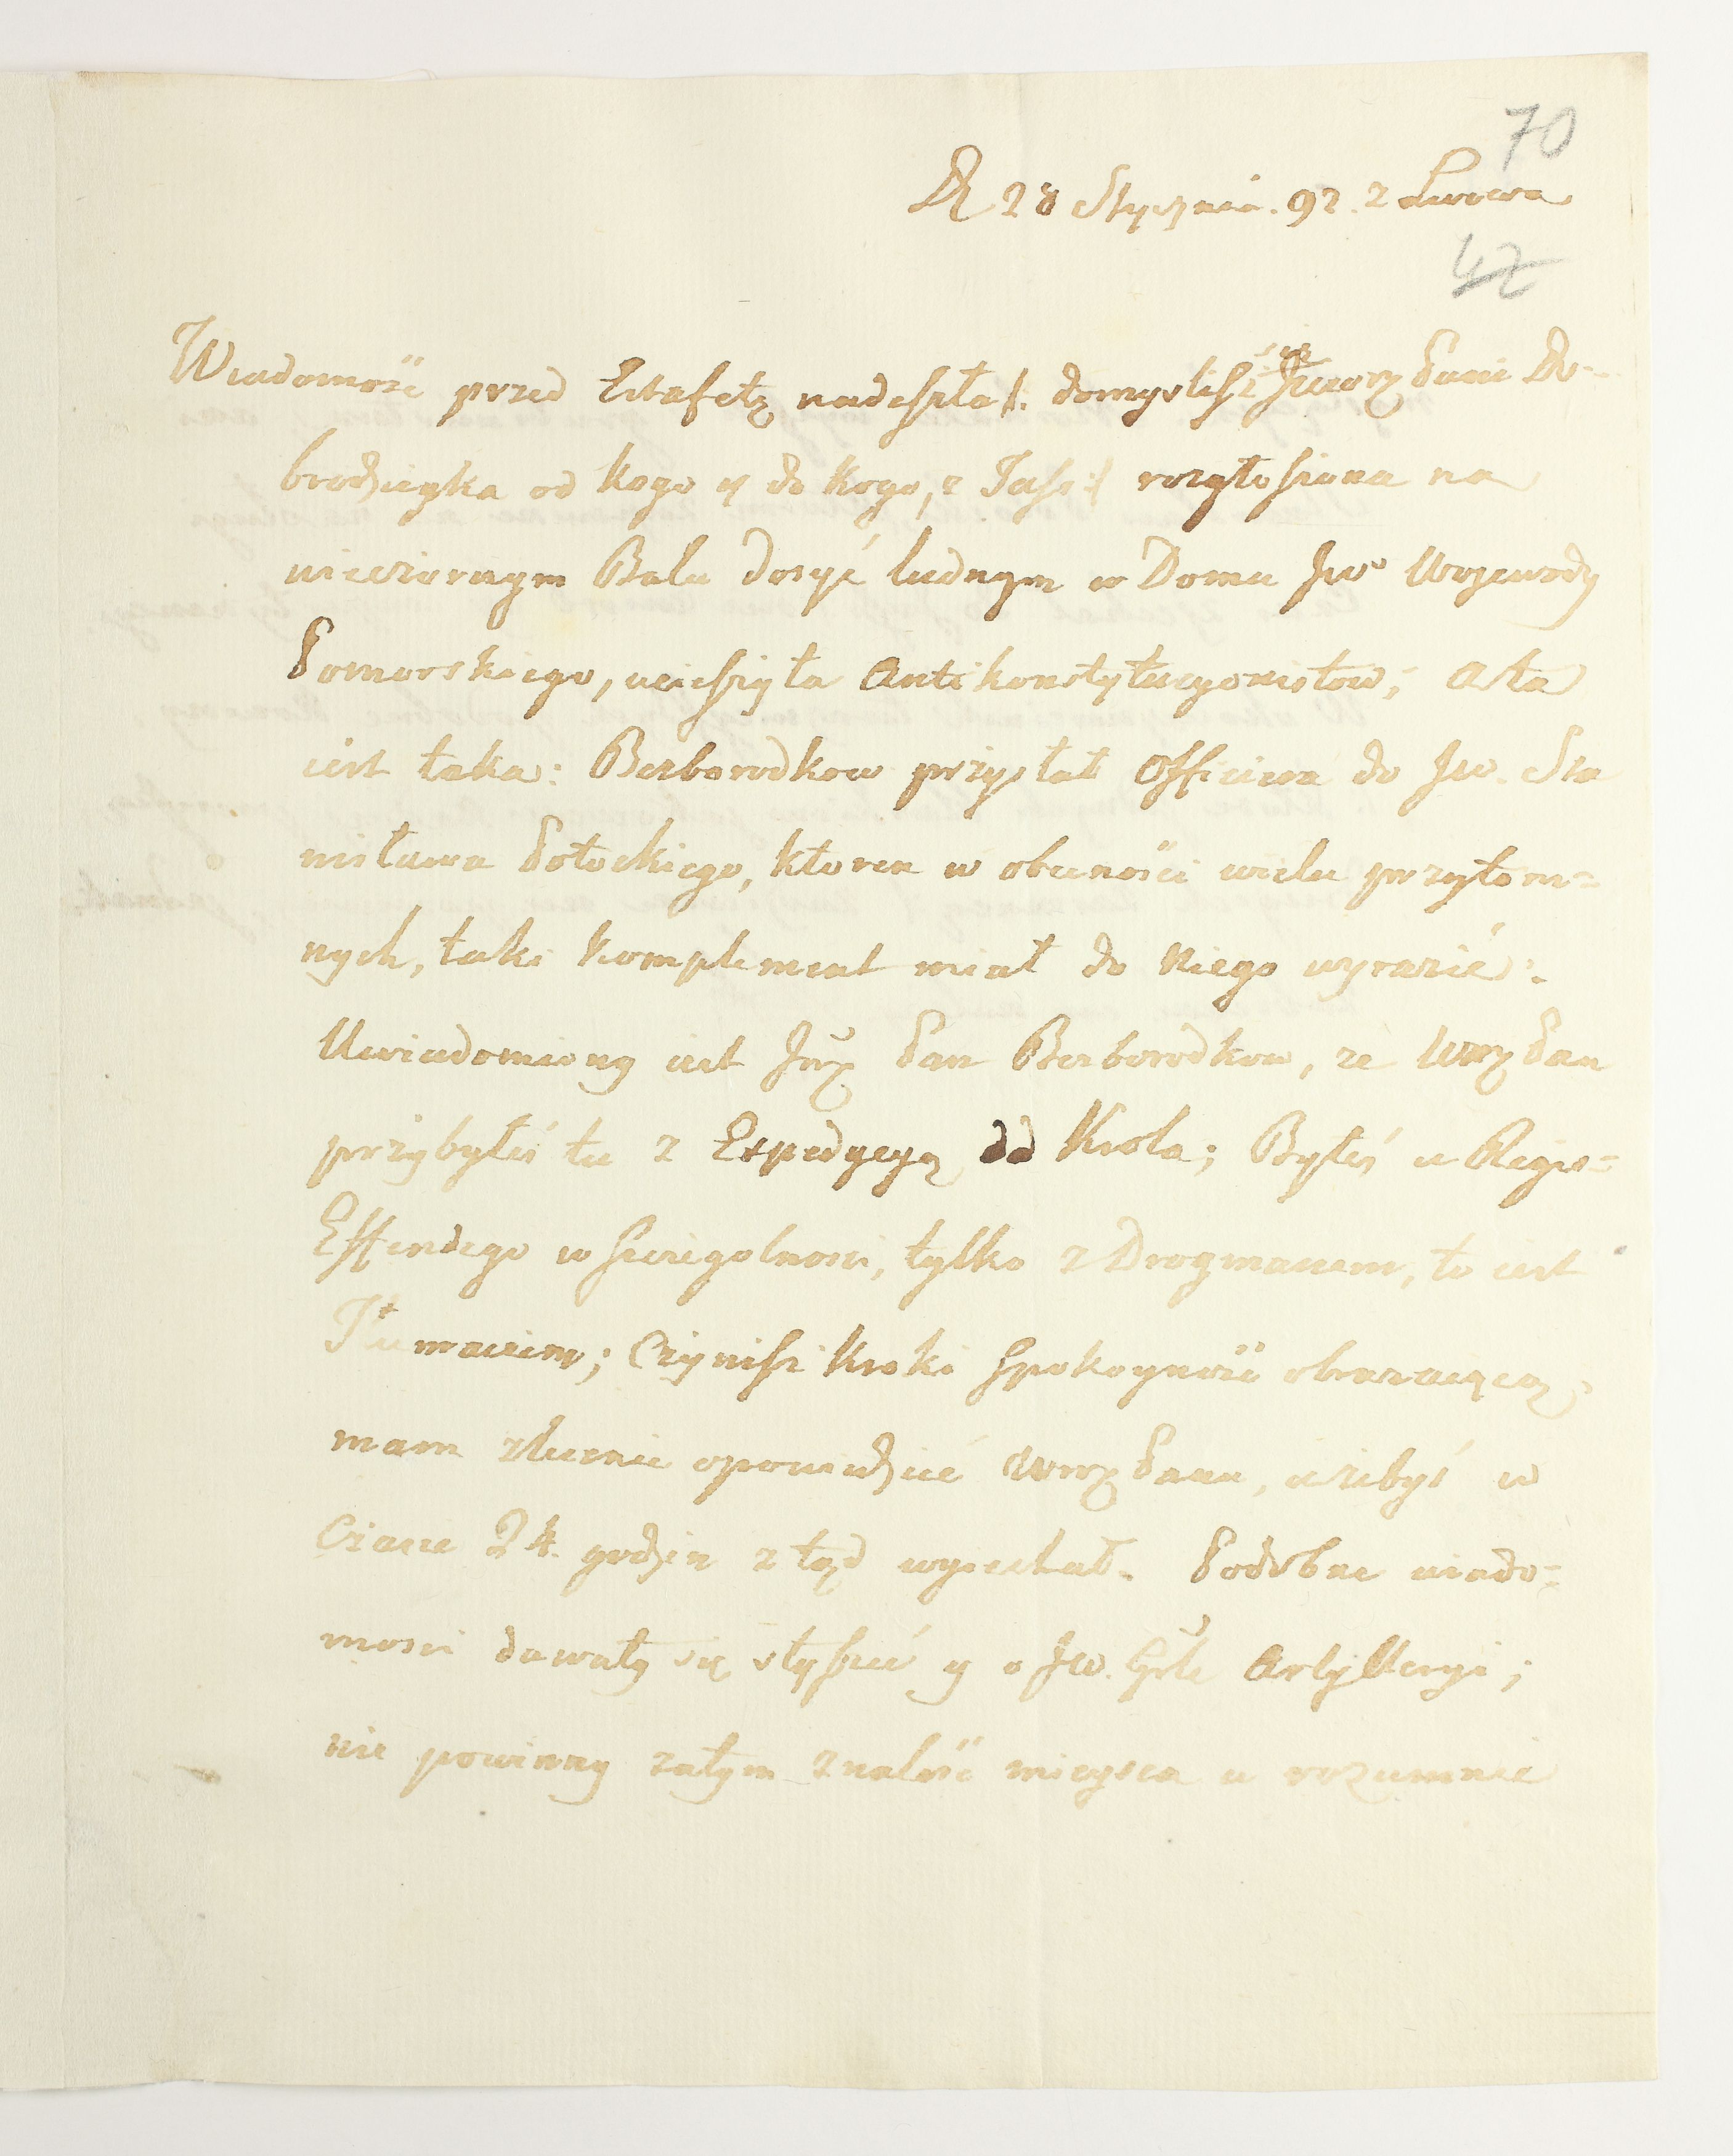 70
D 28 Stycznia. 92. z Lwowa
42
Wiadomość przed Estafetą nadeszła /: domyslisz się JWWM Pani Do-
brodzieyka od kogo y do kogo, z Jass :/ rozgłoszona na
wieczornym Balu dosyć ludnym w Domu JW Wojewody
Pomorskiego, ucieszyła Antikonstytucyonistow; A ta
iest taka: Bezborodkow przysłał Officiera do JW. Sta
nisława Potockiego, ktoren w obecności wielu przytom=
nych, taki komplement miał do niego wyrazić:
Uwiadomiony iest JW Pan Bezborodkow, ze WM Pan
przybyłeś tu z Expedycyą od Krola; Byłeś u Reys=
Effendego w szczegolnosci, tylko z Drogmanem, to iest
Tłumaczem; Czynisz kroki spokoyność obrazaiące,
mam zlecenie opowiedzieć WM Panu, ażebyś w
Czasie 24. godzin z tąd wyiechał. Podobne wiado=
mosci dawały się słyszeć y o JW. Grle Artylleryi;
nie powinny zatym znaleść mieysca u rozumnie